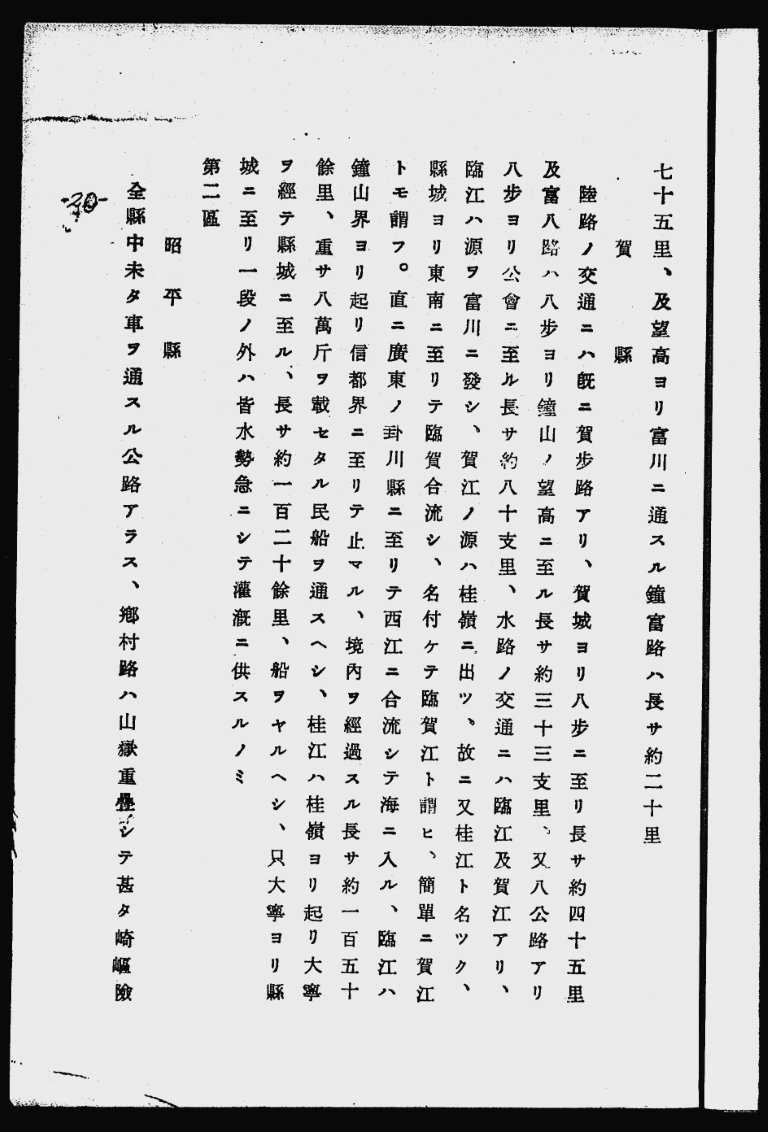 七十五里、及望高ヨリ富川ニ通スル鐘富路ハ長サ約二十里
賀縣
陸路ノ交通ニハ既ニ賀步路アリ、賀城ヨリ八步ニ至リ長サ約四十五里
及富八路ハ八步ヨリ鐘山ノ望高ニ至ル長サ約三十三支里、又八公路アリ
八步ヨリ公會ニ至ル長サ約八十支里、水路ノ交通ニハ臨江及賀江アリ、
臨江ハ源ヲ富川ニ發シ、賀江ノ源ハ桂嶺ニ出ツ、故ニ又桂江ト名ツク、
縣城ヨリ東南ニ至リテ臨賀合流シ、名付ケテ臨賀江ト謂ヒ、簡單ニ賀江
トモ謂フ。直ニ廣東ノ卦川縣ニ至リテ西江ニ合流シテ海ニ入ル、臨江ハ
鐘山界ヨリ起リ信都界ニ至リテ止マル、境內ヲ經過スル長サ約一百五十
餘里、重サ八萬斤ヲ載セタル民船ヲ通スヘシ、桂江ハ桂嶺ヨリ起リ大寧
ヲ經テ縣城ニ至ル、長サ約一百二十餘里、船ヲヤルヘシ、只大寧ヨリ縣
城ニ至リ一段ノ外ハ皆水勢急ニシテ灌漑ニ供スルノミ
第二區
昭平縣
全縣中未タ車ヲ通スル公路アラス、鄉村路ハ山嶽重疊シテ甚タ崎嶇險
-20-